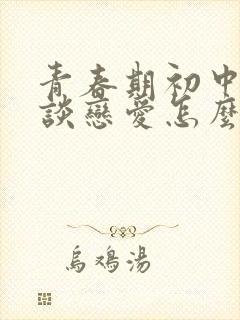 青春期初中
談戀愛怎麼
烏鳮湯